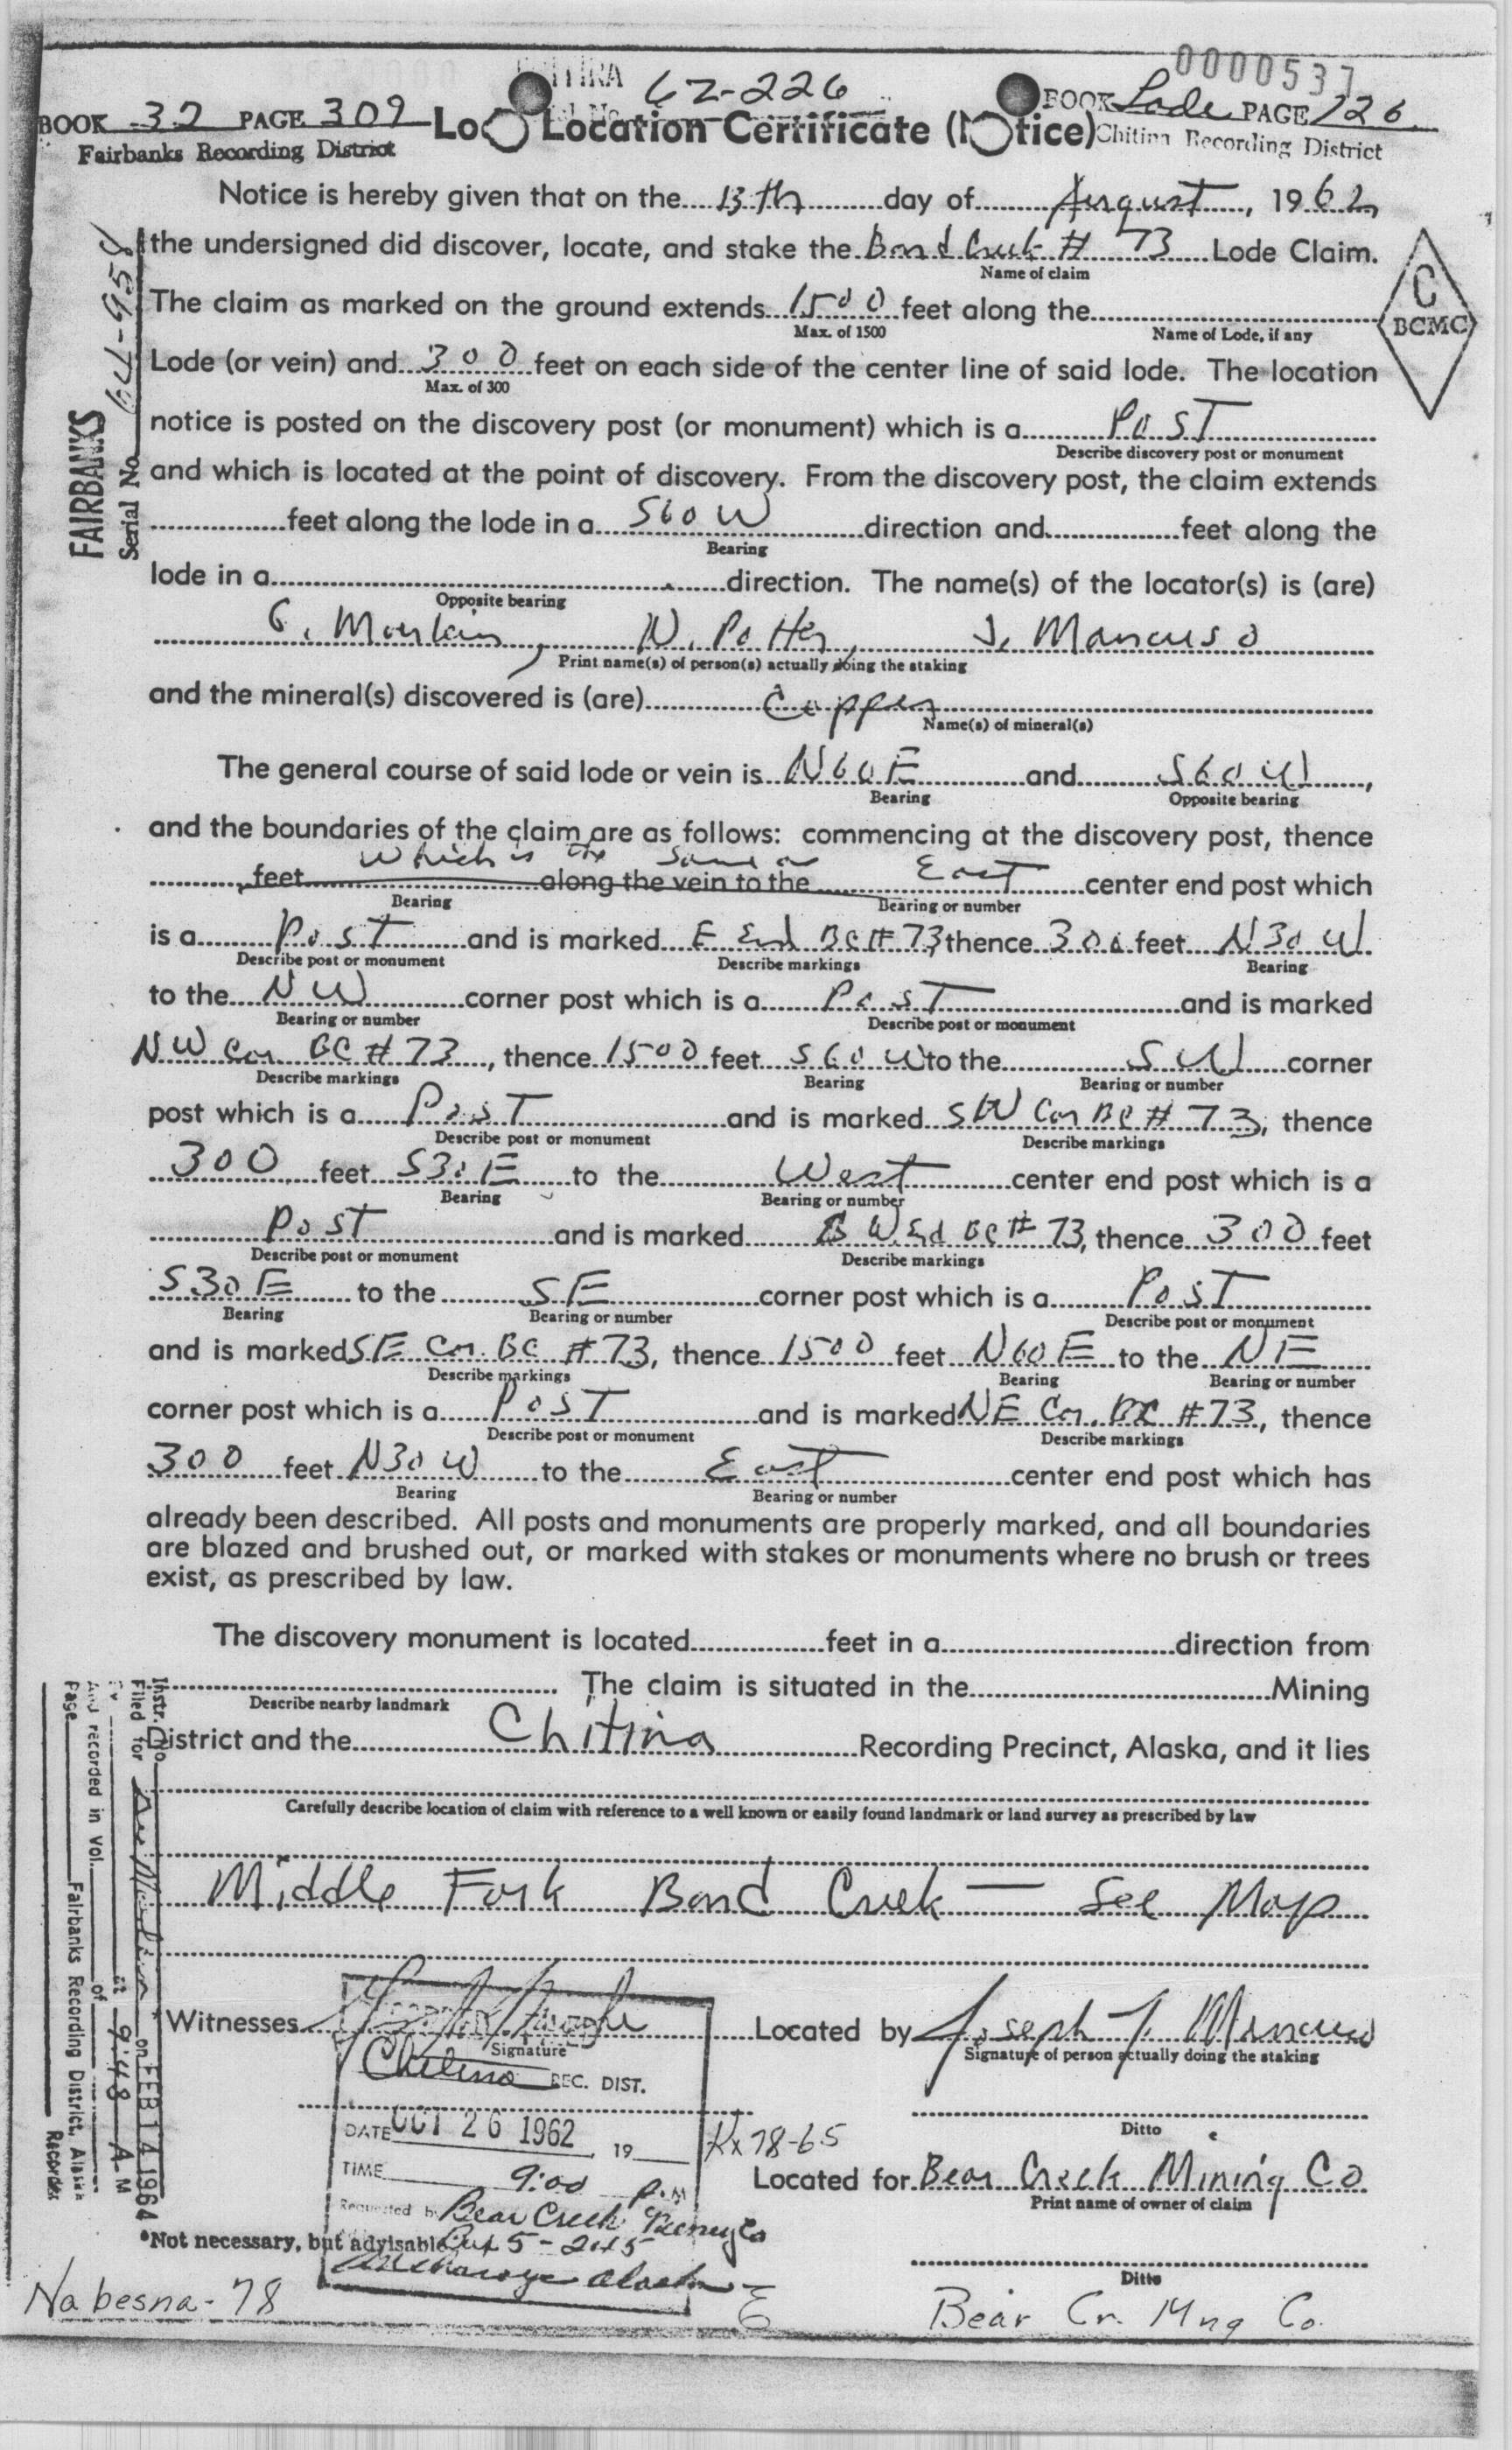 0000537
62-226
BOOK 32 PAGE 309
Fairbanks Recording District
Location Certificate (Notice)
BOOK Lode PAGE 126
Chitina Recording District
Notice is hereby given that on the 13th day of August, 1962
the undersigned did discover, locate, and stake the Bond Creek # 73 Lode Claim.
Name of claim
The claim as marked on the ground extends 1500 feet along the
Max. of 1500 Name of Lode, if any
C
BCMC
Lode (or vein) and 300 feet on each side of the center line of said lode. The location
Max. of 300
notice is posted on the discovery post (or monument) which is a Post
Describe discovery post or monument
and which is located at the point of discovery. From the discovery post, the claim extends
feet along the lode in a S60W direction and feet along the
Bearing
lode in a direction. The name(s) of the locator(s) is (are)
Opposite bearing
N. Potter, J. Mancuso
Print name(s) of person(s) actually doing the staking
and the mineral(s) discovered is (are) Copper
Name(s) of mineral(s)
The general course of said lode or vein is N60E and S60W,
Bearing Opposite bearing
and the boundaries of the claim are as follows: commencing at the discovery post, thence
which is the same as
feet along the vein to the East center end post which
Bearing Bearing or number
is a Post and is marked E End BC # 73 thence 300 feet N30W
Describe post or monument Describe markings Bearing
to the NW corner post which is a Post and is marked
Bearing or number Describe post or monument
NW Cor BC # 73, thence 1500 feet S60W to the SW corner
Describe markings Bearing Bearing or number
post which is a Post and is marked SW Cor BC # 73, thence
Describe post or monument Describe markings
300 feet S30E to the West center end post which is a
Bearing Bearing or number
Post and is marked W End BC # 73, thence 300 feet
Describe post or monument Describe markings
S30E to the SE corner post which is a Post
Bearing Bearing or number Describe post or monument
and is marked SE Cor. BC # 73, thence 1500 feet N60E to the NE
Describe markings Bearing Bearing or number
corner post which is a Post and is marked NE Cor. BC # 73, thence
Describe post or monument Describe markings
300 feet N30W to the East center end post which has
Bearing Bearing or number
already been described. All posts and monuments are properly marked, and all boundaries
are blazed and brushed out, or marked with stakes or monuments where no brush or trees
exist, as prescribed by law.
The discovery monument is located feet in a direction from
The claim is situated in the Mining
Describe nearby landmark
District and the Chitina Recording Precinct, Alaska, and it lies
Carefully describe location of claim with reference to a well known or easily found landmark or land survey as prescribed by law
Middle Fork Bond Creek — See Map
Witnesses Located by Joseph J. Mancuso
Signature Signature of person actually doing the staking
Chitina REC. DIST.
DATE OCT 26 1962 19
Ditto
Kx 78-65
TIME 9:00 P.M
Located for Bear Creek Mining Co
Print name of owner of claim
Requested by Bear Creek Mining Co
*Not necessary, but advisable
Box 5-245
Anchorage Alaska
Ditto
Nabesna-78
Bear Cr. Mng Co.
FAIRBANKS
Serial No. 64-958
Instr. No.
Filed for on FEB 14 1964
By at 9:48 A M
And recorded in Vol. of
Page Fairbanks Recording District, Alaska
Recorder